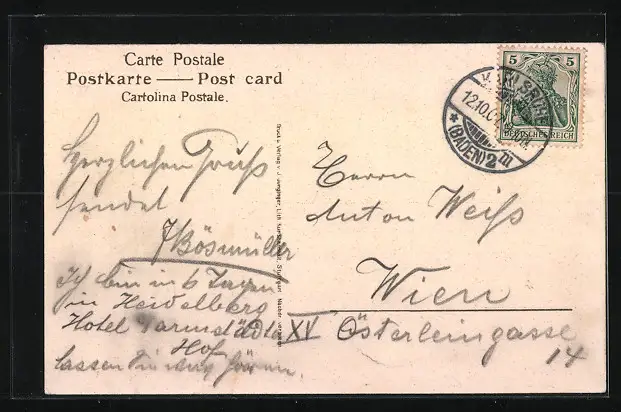 Carte Postale
Postkarte — Post card
Cartolina Postale.
Herzlichen Gruß
sendet
J Bösmüller
Ich bin in 6 Tagen
in Heidelberg
Hotel Darmstädter
Hof
lassen Sie was hören.
Herrn
Anton Weiß
Wien
XV Österleingasse
14
5 5
DEUTSCHES REICH
KARLSRUHE
12.10.0
* (BADEN) 2 m